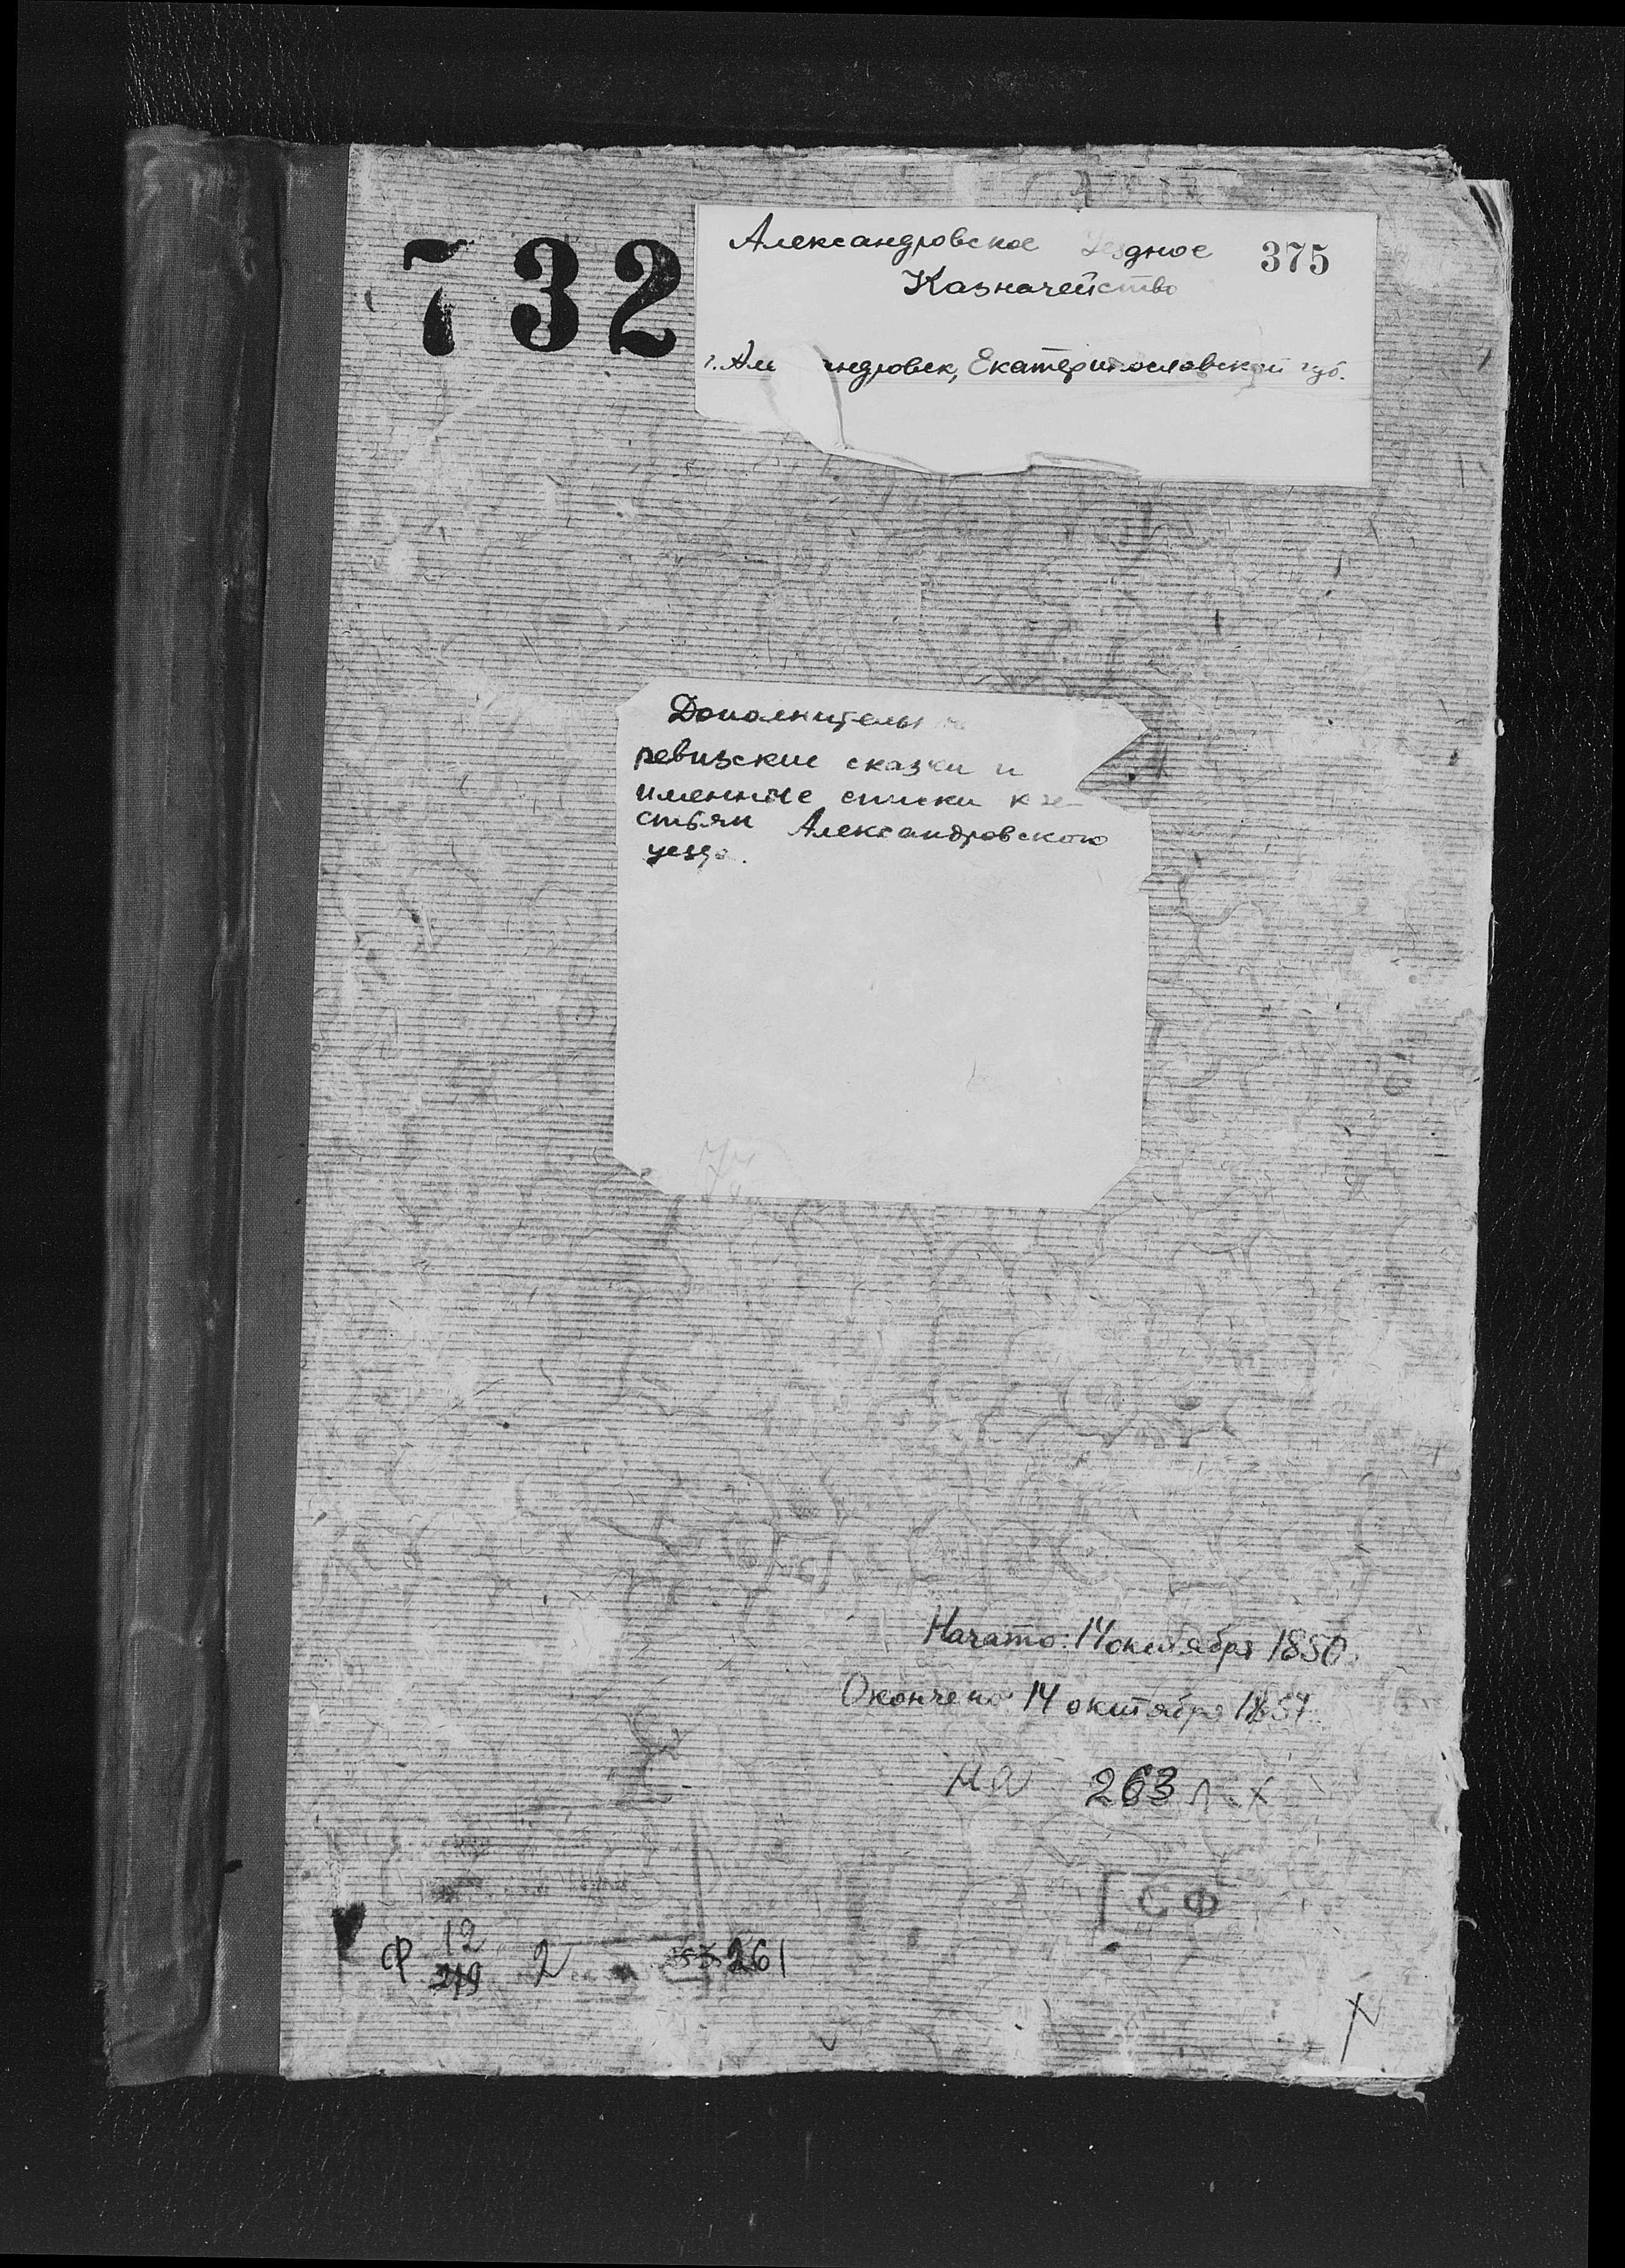 732
Александровское Уездное 375
Казначейство
г. Але андровск, Екатеринославской губ.
Дополнительн
ревизские сказки и
именные списки кре-
стьян Александровского
уезда.
Начато: 14 октября 1850.
Окончено 14 октября 1857.
На 263 л.х
ГСФ
Ф 12 2 261
279